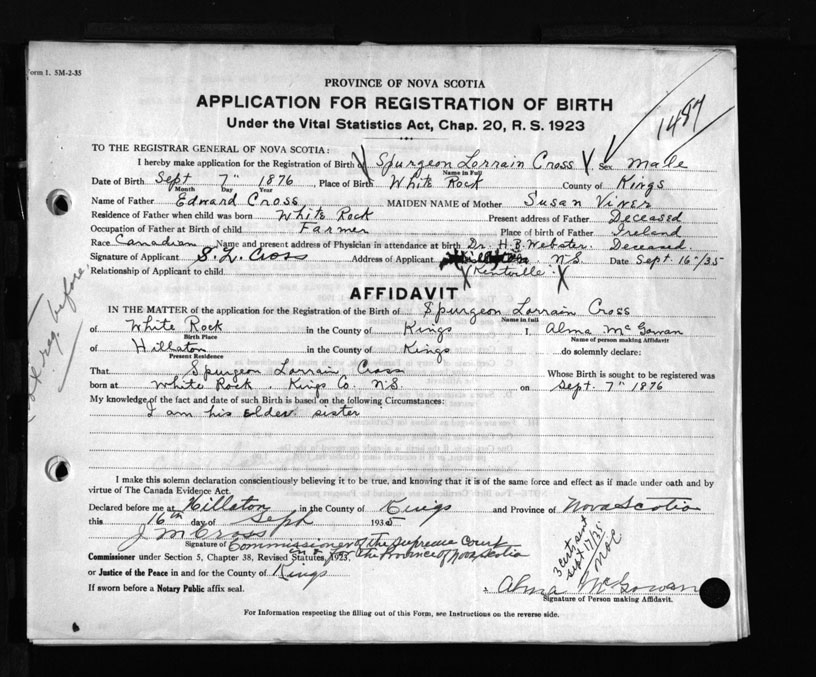 Form 1. 5M-2-35
PROVINCE OF NOVA SCOTIA
APPLICATION FOR REGISTRATION OF BIRTH
Under the Vital Statistics Act, Chap. 20, R. S. 1923
1487
TO THE REGISTRAR GENERAL OF NOVA SCOTIA:
I hereby make application for the Registration of Birth of Spurgeon Lorrain Cross Sex Male
Name in Full
Date of Birth Sept 7" 1876, Place of Birth White Rock County of Kings
Month Day Year
Name of Father Edward Cross, MAIDEN NAME of Mother Susan
Residence of Father when child was born White Rock Present address of Father Deceased
Occupation of Father at Birth of child Farmer Place of birth of Father Ireland
Race Canadian Name and present address of Physician in attendance at birth Dr. H.B. Webster. Deceased.
Signature of Applicant S. L. Cross Address of Applicant N.S. Date Sept. 16"/35
Relationship of Applicant to child X Kentville X
AFFIDAVIT
IN THE MATTER of the application for the Registration of the Birth of Spurgeon Lorrain Cross
Name in full
of White Rock in the County of Kings I, Alma McGowan
Birth Place Name of person making Affidavit
of Hillaton in the County of Kings do solemnly declare:
Present Residence
That Spurgeon Lorrain Cross Whose Birth is sought to be registered was
born at White Rock, Kings Co. N.S. on Sept. 7" 1876
My knowledge of the fact and date of such Birth is based on the following Circumstances:
I am his older sister
I make this solemn declaration conscientiously believing it to be true, and knowing that it is of the same force and effect as if made under oath and by
virtue of The Canada Evidence Act.
Declared before me at Hillaton in the County of Kings and Province of Nova Scotia
this 16th day of Sept 1935
J M Cross
Signature of Commissioner of the Supreme Court
in & for the Province of Nova Scotia
Commissioner under Section 5, Chapter 38, Revised Statutes, 1923.
or Justice of the Peace in and for the County of Kings
If sworn before a Notary Public affix seal.
Alma McGowan
Signature of Person making Affidavit.
3 certs sent
Sept 17/35
For Information respecting the filling out of this Form, see Instructions on the reverse side.
reg. before